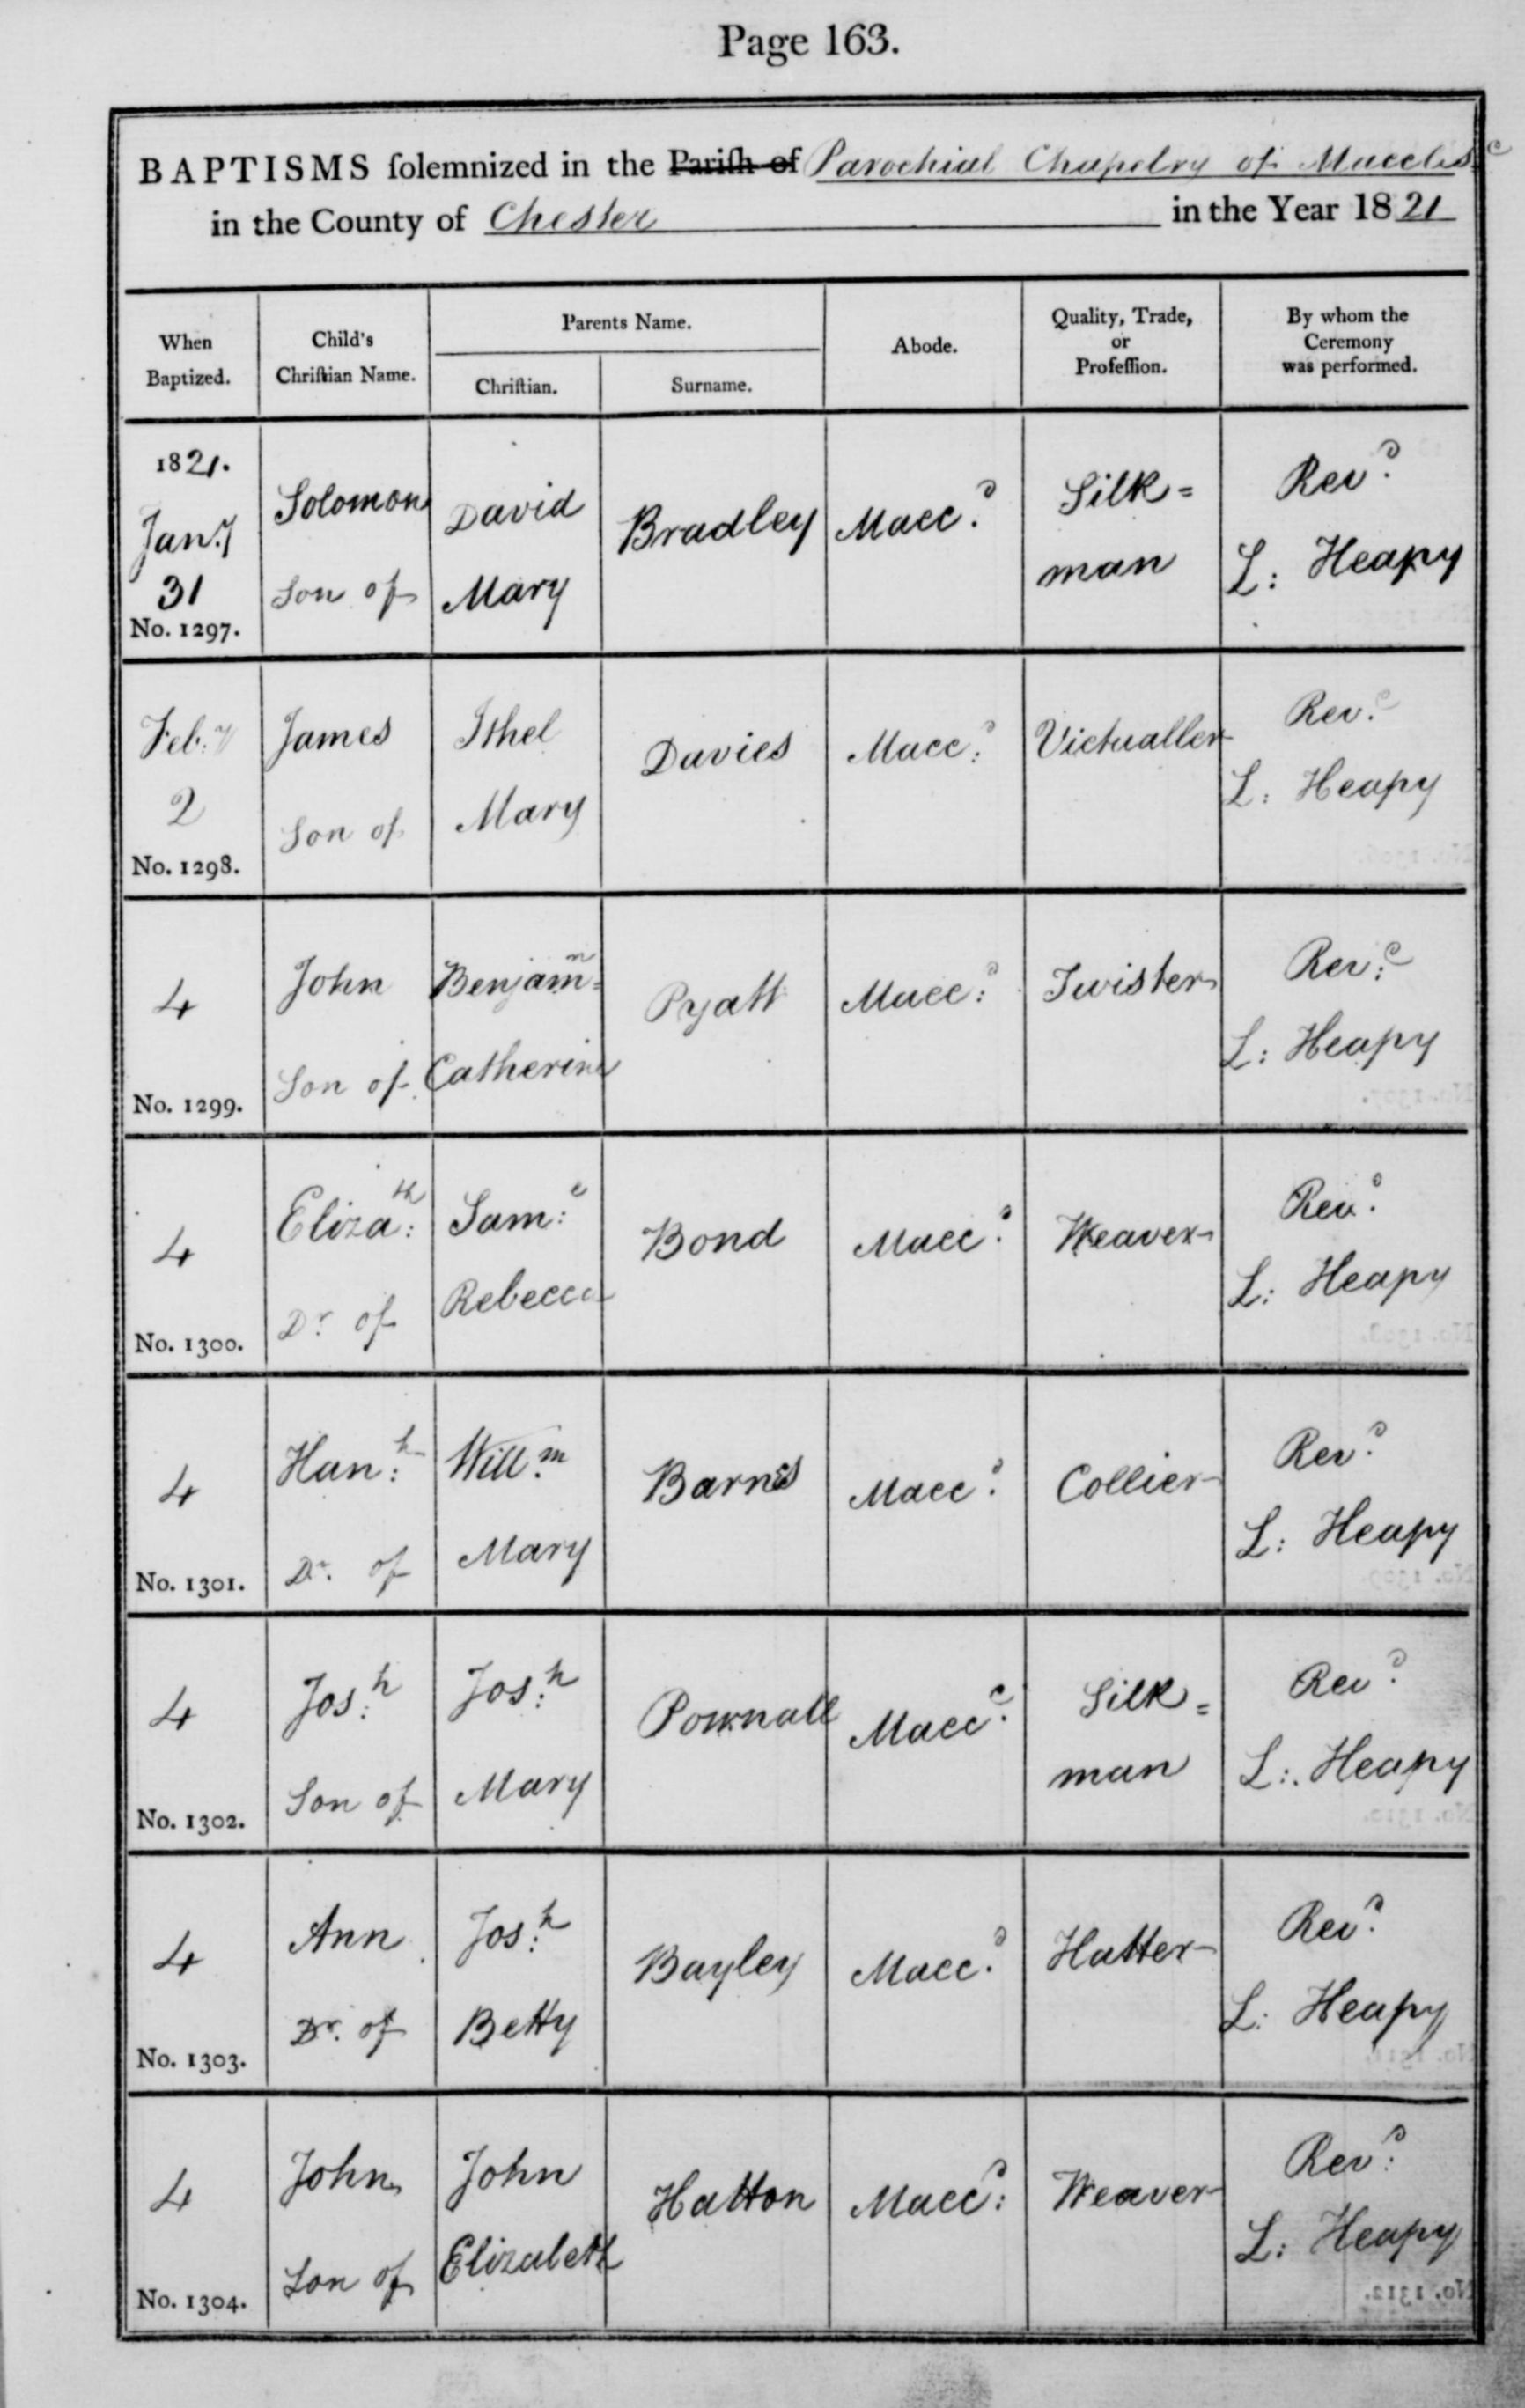 Page 163.
BAPTISMS ſolemnized in the Pariſh of Parochial Chapelry of Maccles.
in the County of Chester in the Year 1821
When Baptized.
Child's Chriſtian Name.
Parents Name.
Chriſtian.
Surname.
Abode.
Quality, Trade, or Profeſſion.
By whom the Ceremony was performed.
1821.
Jan.y
31
No. 1297.
Solomon
Son of
David
Mary
Bradley
Macc.d
Silk=
man
Rev.d
L: Heapy
Feb:y
2
No. 1298.
James
Son of
Ithel
Mary
Davies
Macc:d
Victualler
Rev.d
L: Heapy
4
No. 1299.
John
Son of
Benjam:n
Catherine
Pyatt
Macc:d
Twister
Rev:d
L: Heapy
4
No. 1300.
Eliza:th
Dr of
Sam:l
Rebecca
Bond
Macc.d
Weaver
Rev.d
L: Heapy
4
No. 1301.
Han:h
Dr. of
Will.m
Mary
Barnes
Macc.d
Collier
Rev.d
L: Heapy
4
No. 1302.
Jos:h
Son of
Jos:h
Mary
Pownall
Macc.d
Silk=
man
Rev.d
L: Heapy
4
No. 1303.
Ann
Dr. of
Jos:h
Betty
Bayley
Macc.d
Hatter
Rev.d
L: Heapy
4
No. 1304.
John
Son of
John
Elizabeth
Hatton
Macc:d
Weaver
Rev:d
L: Heapy